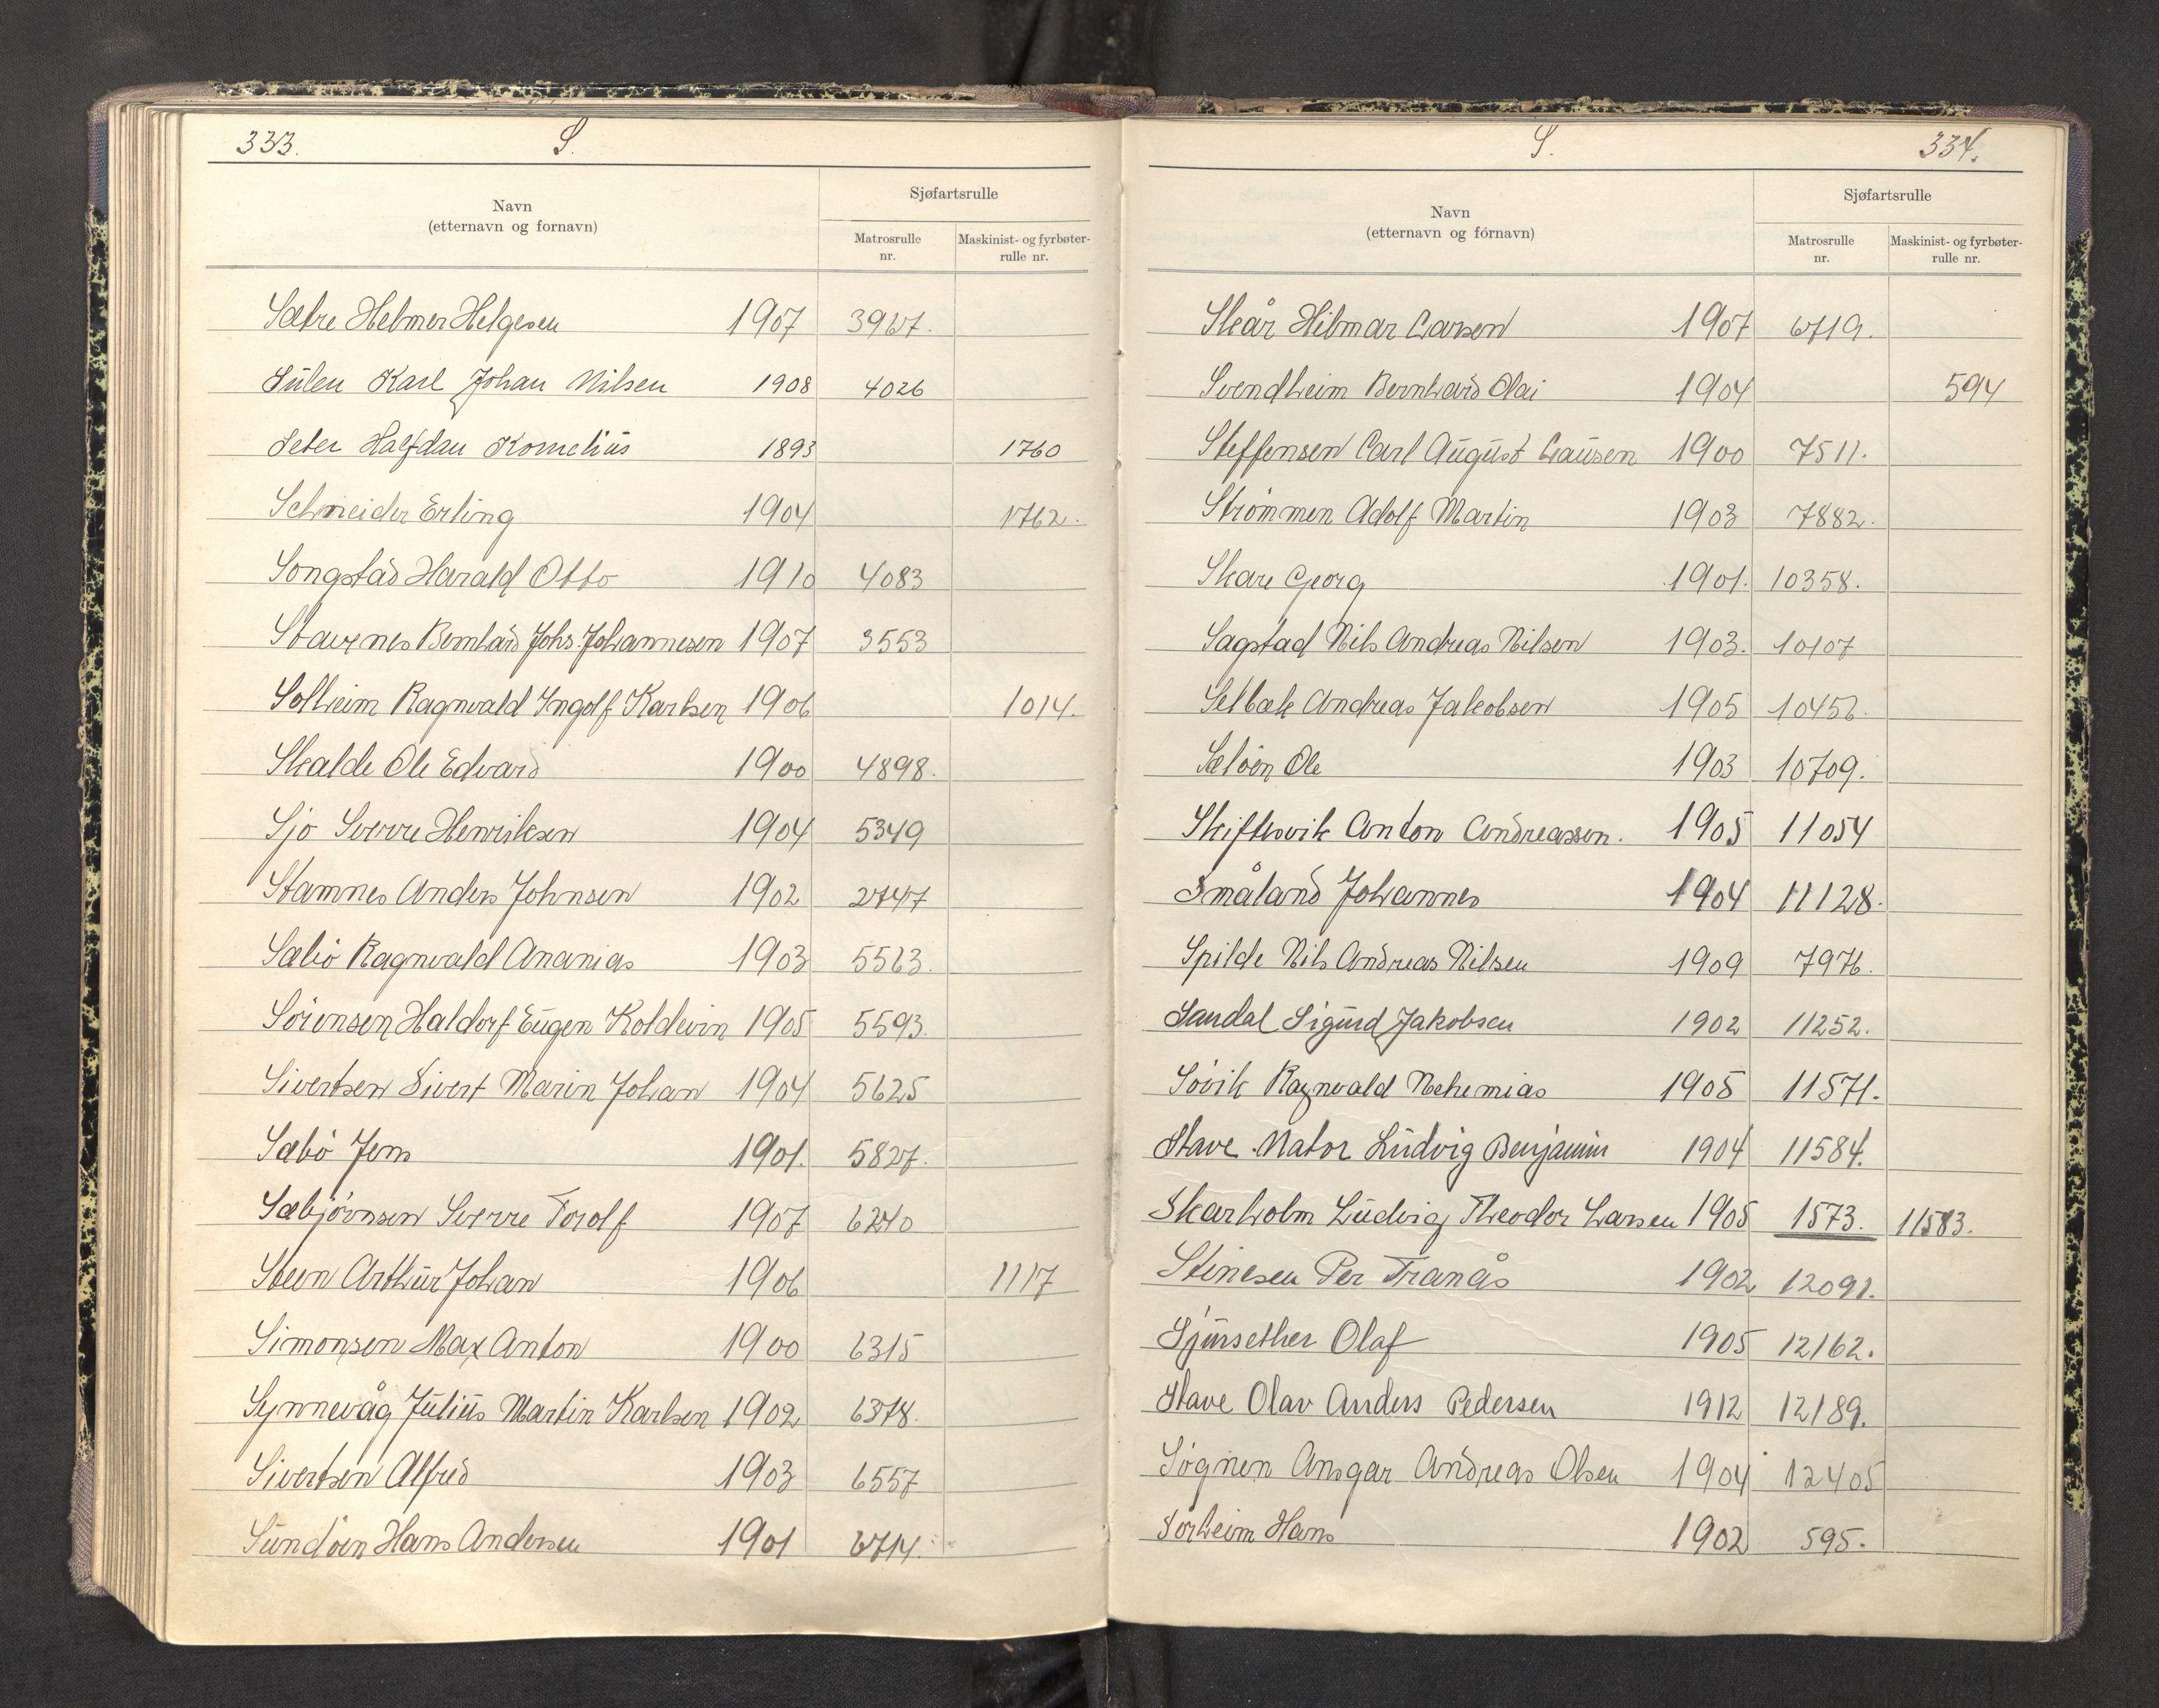 333.
S.
Navn
(etternavn og fornavn)
Sjøfartsrulle
Matrosrulle
nr.
Maskinist- og fyrbøter-
rulle nr.
Sætre Helmer Helgesen 1907 3967.
Sulen Karl Johan Nilsen 1908 4026
Seter Halfdan Kornelius 1893 1760
Schneider Erling 1904 1762.
Songstad Harald Otto 1910 4083
Stavenes Bernhard Johs. Johannesen 1907 3553
Solheim Ragnvald Ingolf Karlsen 1906 1014.
Skalde Ole Edvard 1900 4898.
Sjo Sverre Henriksen 1904 5349
Stamnes Anders Johnsen 1902 2747
Sæbö Ragnvald Ananias 1903 5563.
Sörensen Haldorf Eugen Koldevin 1905 5593.
Sivertsen Sivert Marin Johan 1904 5625
Sæbö Jens 1901. 5827.
Sæbjörnsen Sverre Torolf 1907 6240
Steen Arthur Johan 1906 1117
Simonsen Max Anton 1900 6315
Synnevåg Julius Martin Karlsen 1902 6378.
Sivertsen Alfred 1903 6557
Sundöen Hans Andersen 1901 6714.
S.
334.
Navn
(etternavn og fornavn)
Sjøfartsrulle
Matrosrulle
nr.
Maskinist- og fyrbøter-
rulle nr.
Skår Hilmar Larsen 1907 6719.
Svendheim Bernhard Olai 1904 594
Steffensen Carl August Clausen 1900 7511.
Strömmen Adolf Martin 1903 7882.
Skare Georg 1901. 10358.
Sagstad Nils Andreas Nilsen 1903. 10107
Selbæk Andreas Jakobsen 1905 10456.
Sælöen Ole 1903 10709.
Skiftesvik Anton Andreassen. 1905 11054
Småland Johannes 1904 11128.
Spilde Nils Andreas Nilsen 1909 7976.
Sandal Sigurd Jakobsen 1902 11252.
Sövik Ragnvald Nehemias 1905 11571.
Stave Nator Ludvig Benjamin 1904 11584.
Skarholm Ludvig Theodor Larsen 1905 1573. 11583.
Stinesen Per Tranås 1902 12091.
Sjursether Olaf 1905 12162.
Stave Olav Anders Pedersen 1912 12189.
Sögnen Ansgar Andreas Olsen 1904 12405
Sörheim Hans 1902 595.